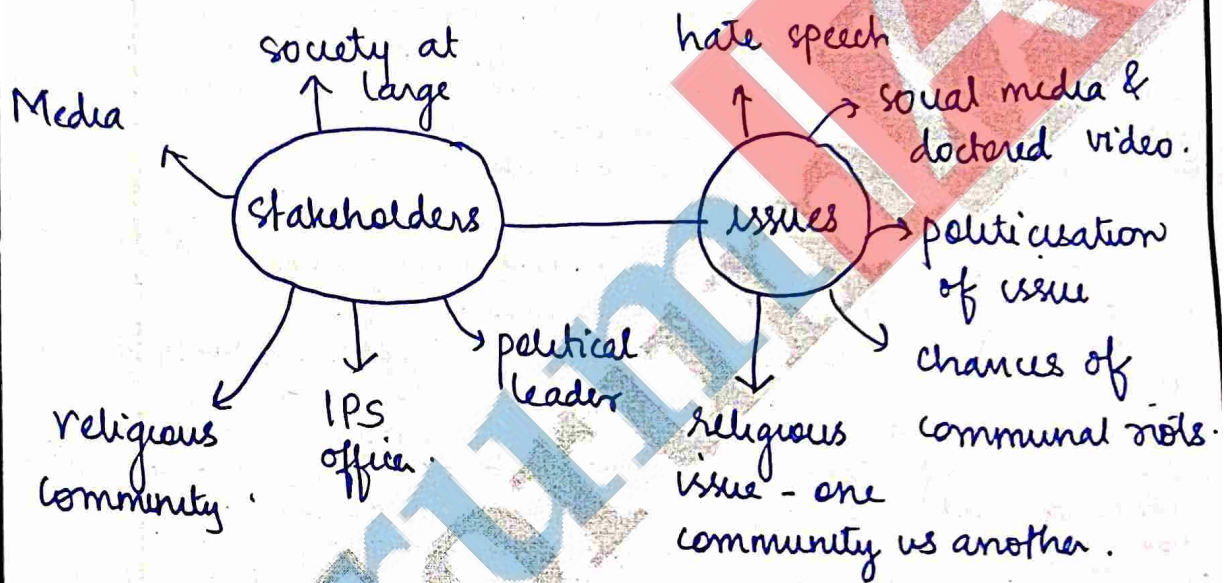 society at
large
Media
stakeholders
religious
community.
IPS
officer.
political
leader
hate speech
social media &
doctored video.
issues
politicisation
of issue
chances of
communal riots.
religious
issue - one
community vs another.